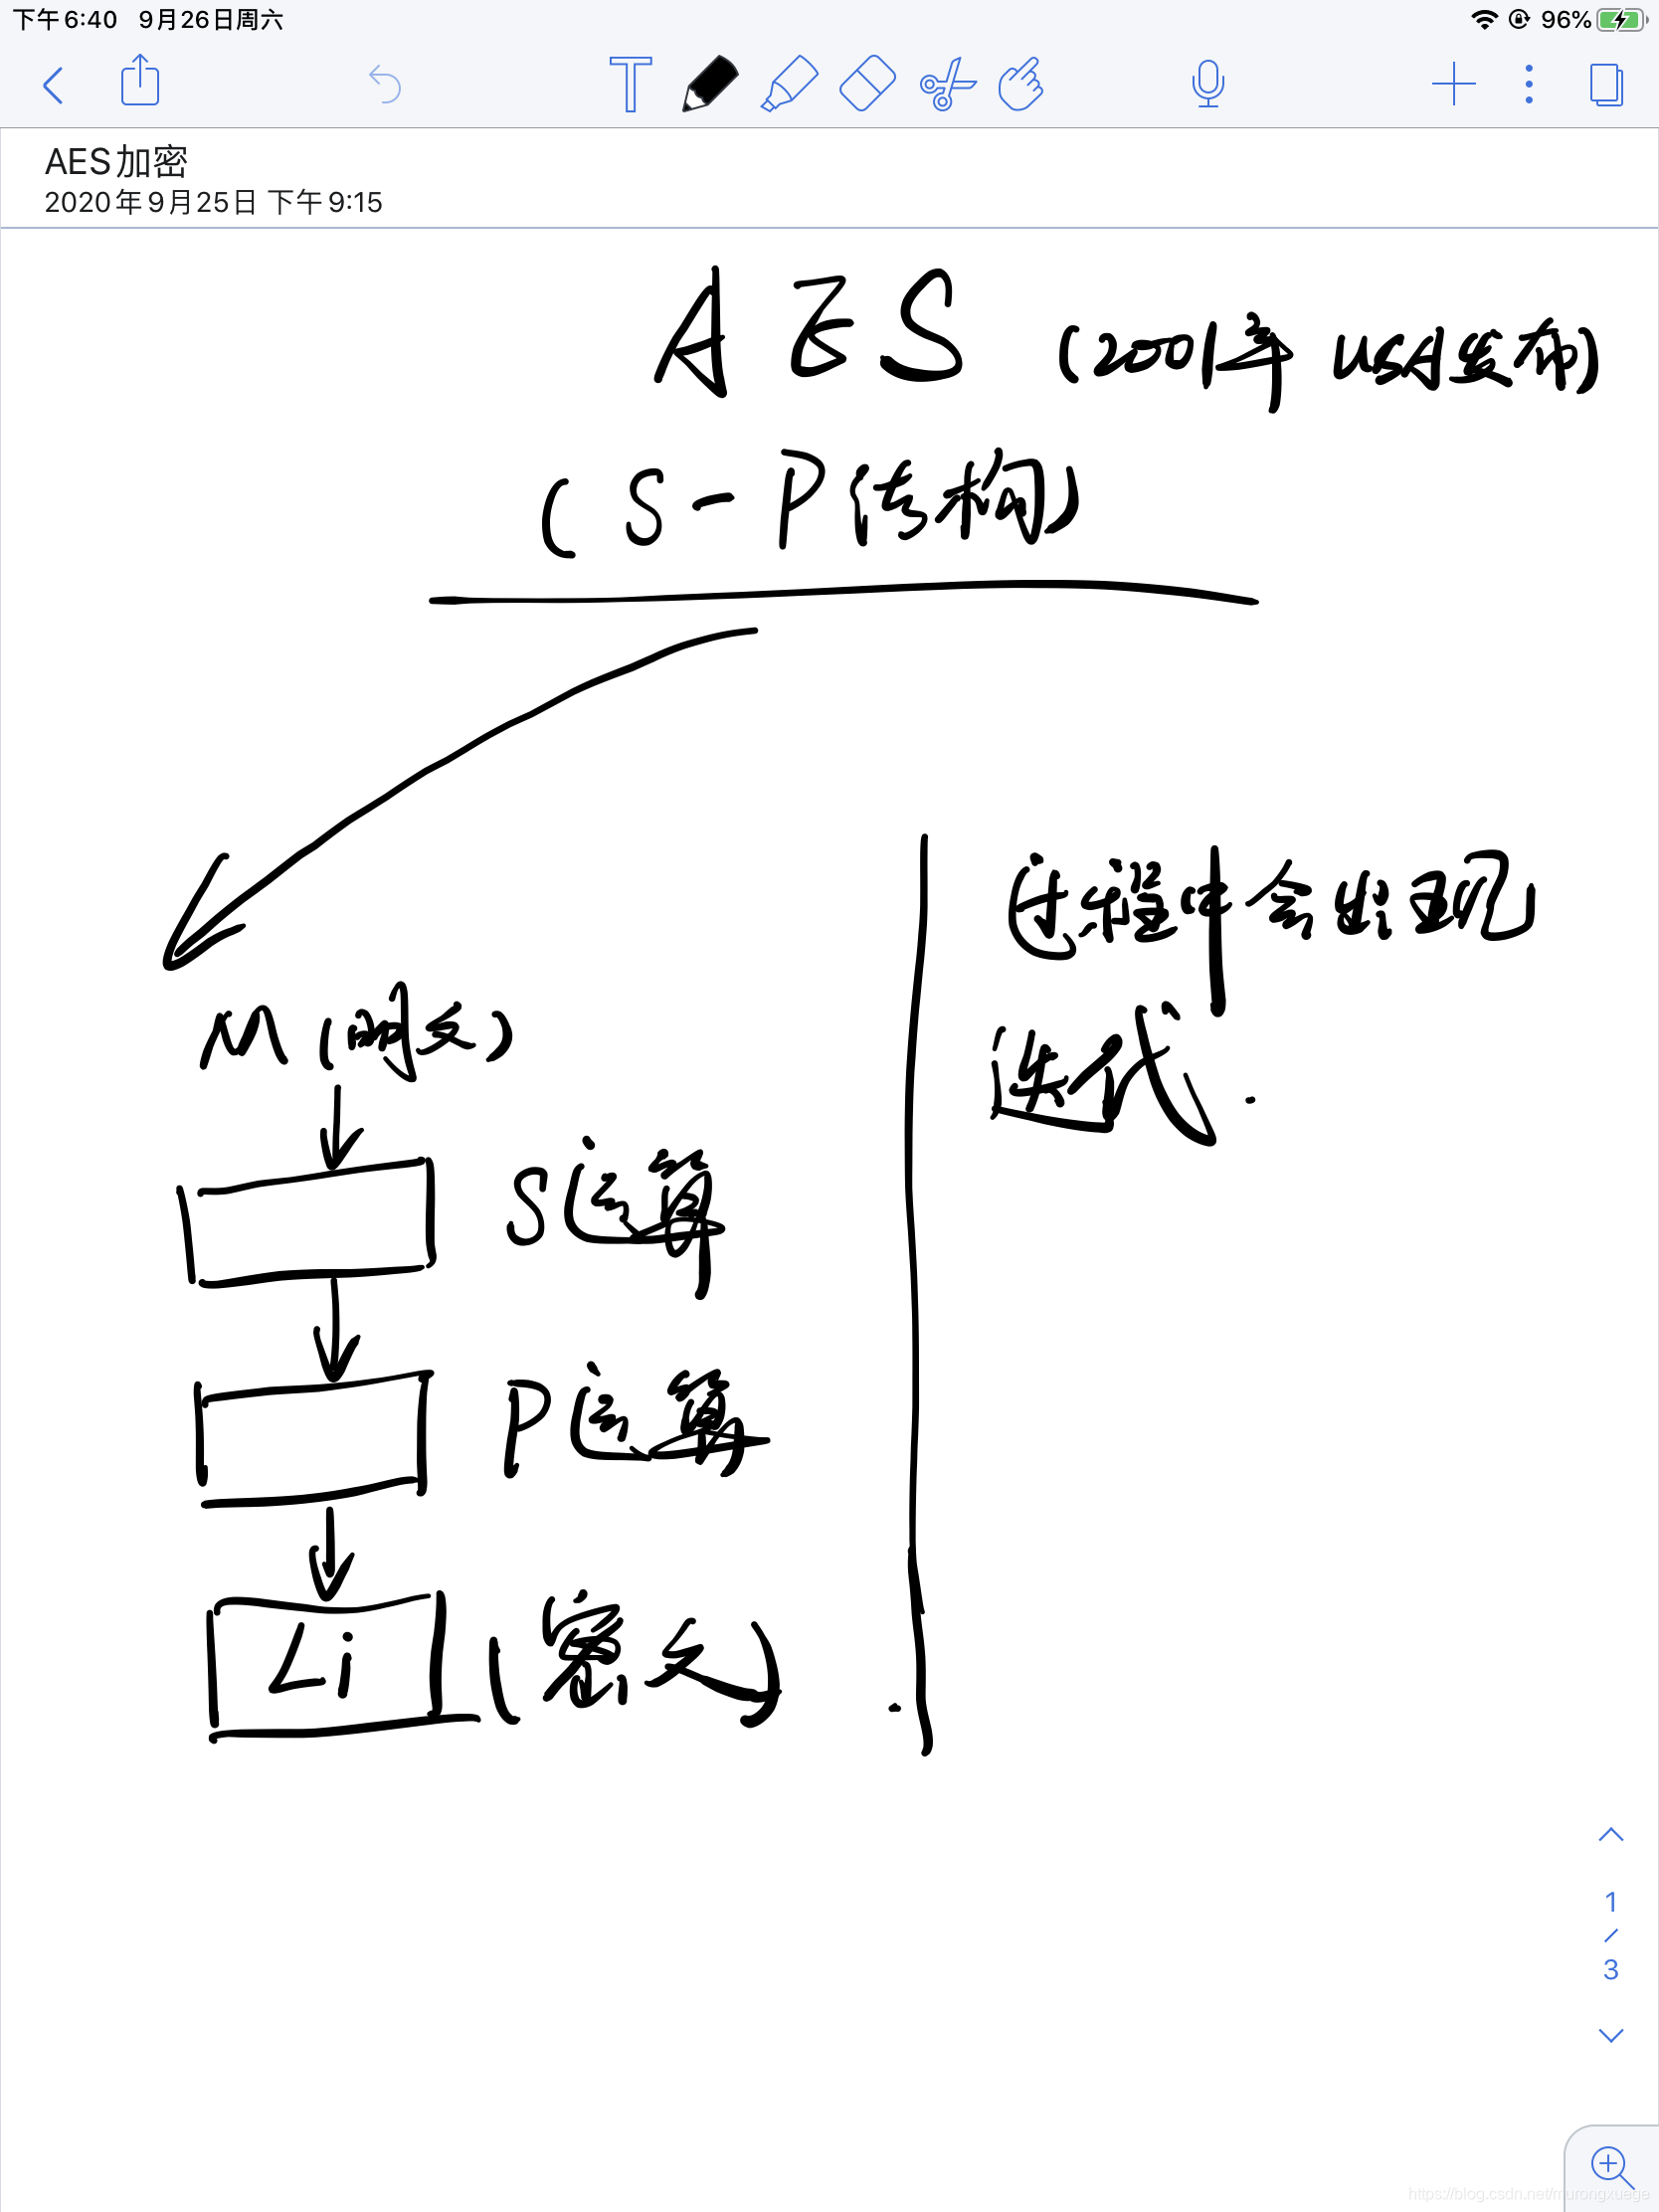 下午6:40 9月26日周六 96%
AES加密
2020年9月25日 下午9:15
AES (2001年 USA发布)
(S-P结构)
M (明文)
S运算
P运算
Li (密文).
过程中会出现
迭代.
1
/
3
https://blog.csdn.net/murongxuege